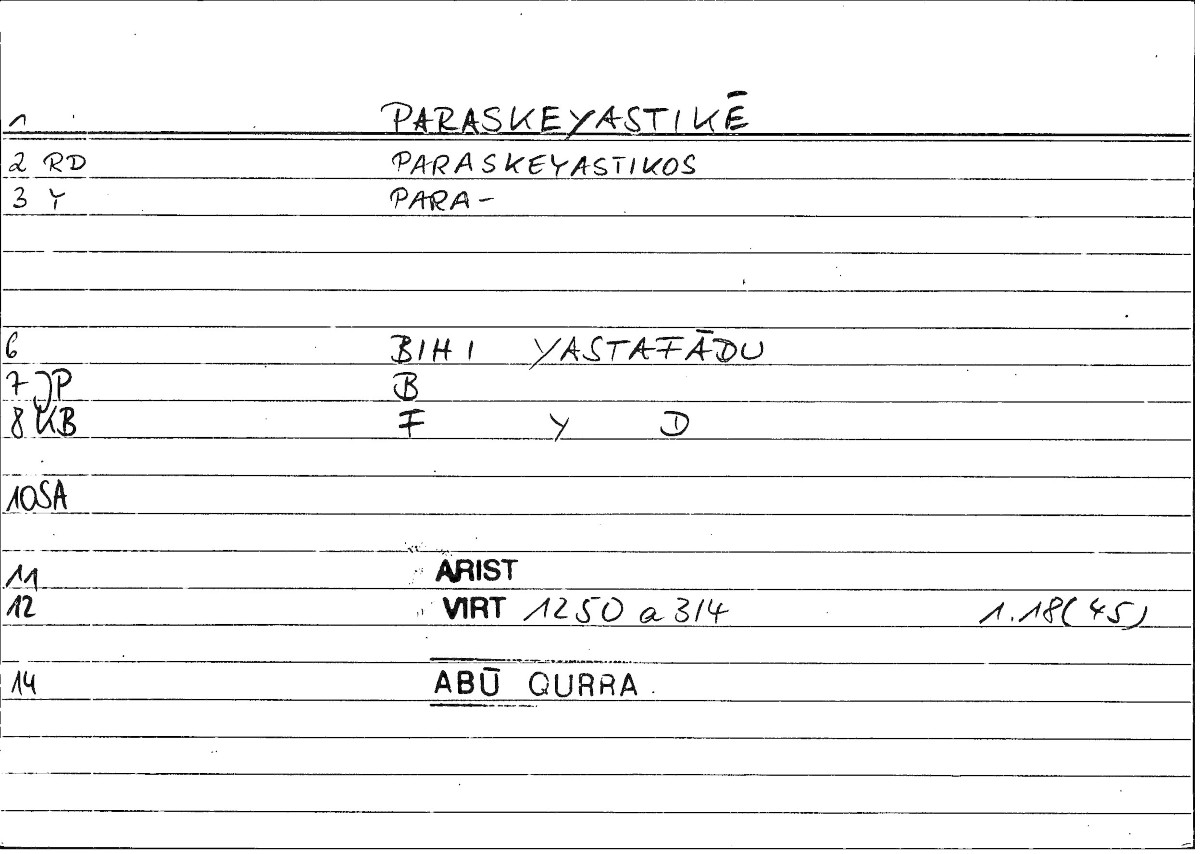 1 PARASKEYASTIKĒ
2 RD PARASKEYASTIKOS
3 Y PARA-
6 BIHI YASTAFĀDU
7 JP B
8 KB F Y D
10 SA
11 ARIST
12 VIRT 1250 a 3/4 1.18(45)
14 ABŪ QURRA